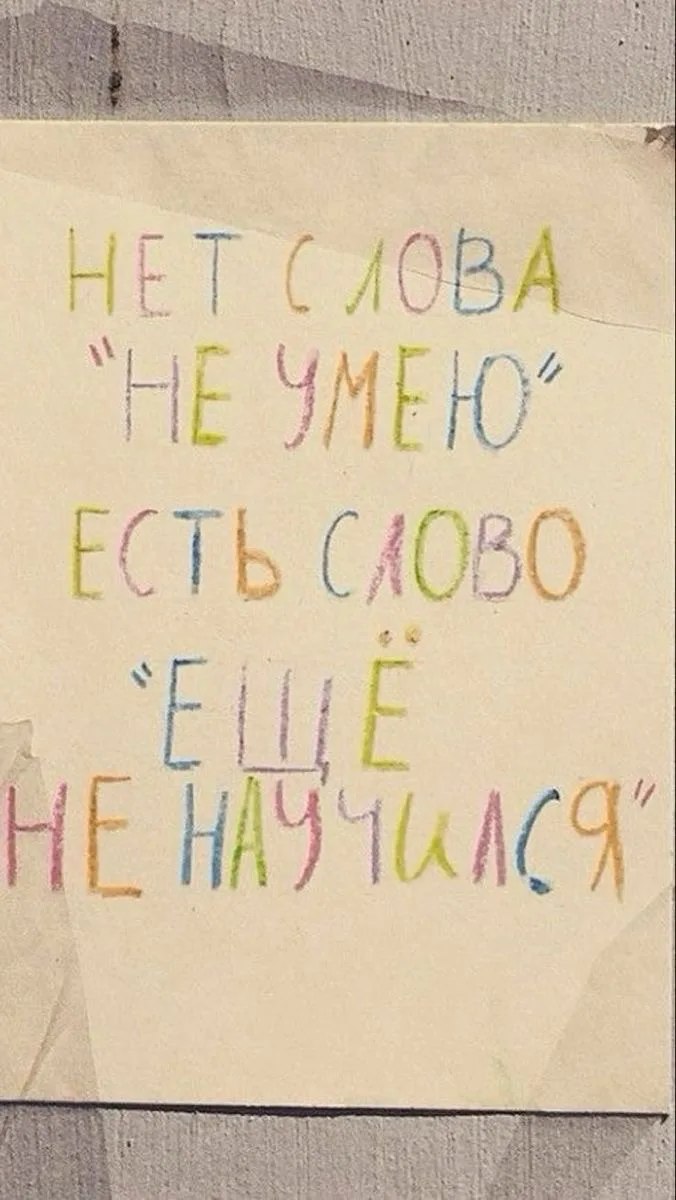 НЕТ СЛОВА
"НЕ УМЕЮ"
ЕСТЬ СЛОВО
"ЕЩЁ
НЕ НАУЧИЛСЯ"